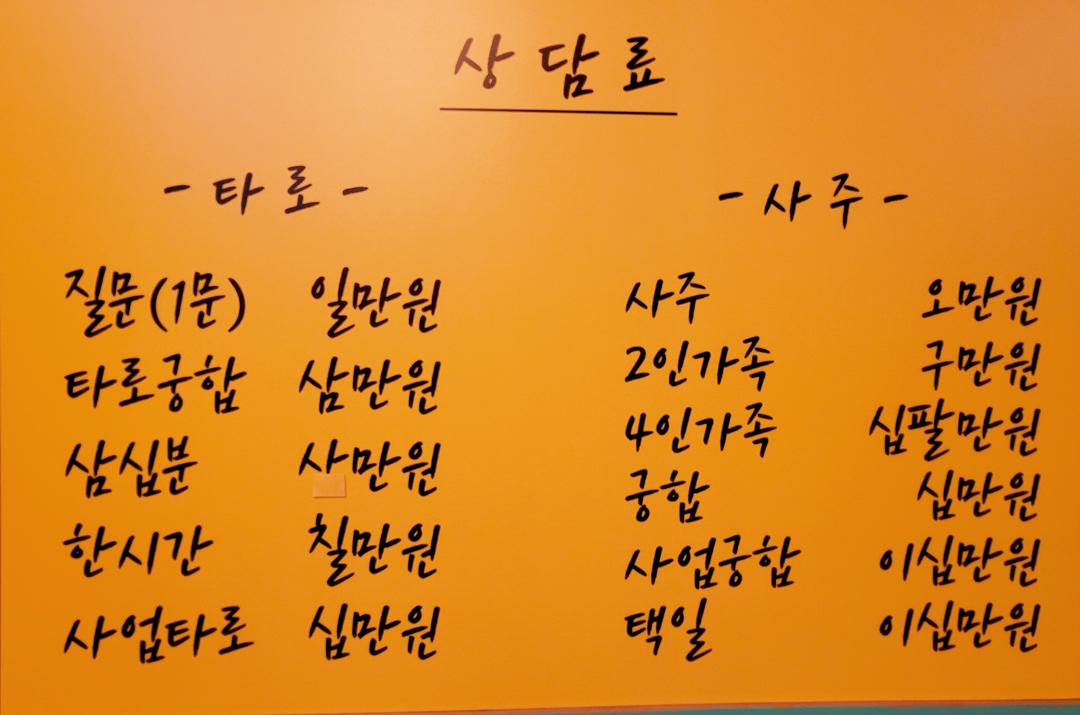 상담료
- 타로 -
질문(1문) 일만원
타로궁합 삼만원
삼십분 사만원
한시간 칠만원
사업타로 십만원
- 사주 -
사주 오만원
2인가족 구만원
4인가족 십팔만원
궁합 십만원
사업궁합 이십만원
택일 이십만원